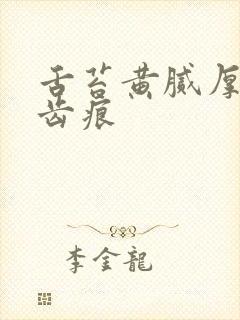 舌苔黄腻厚
齿痕
李金龍